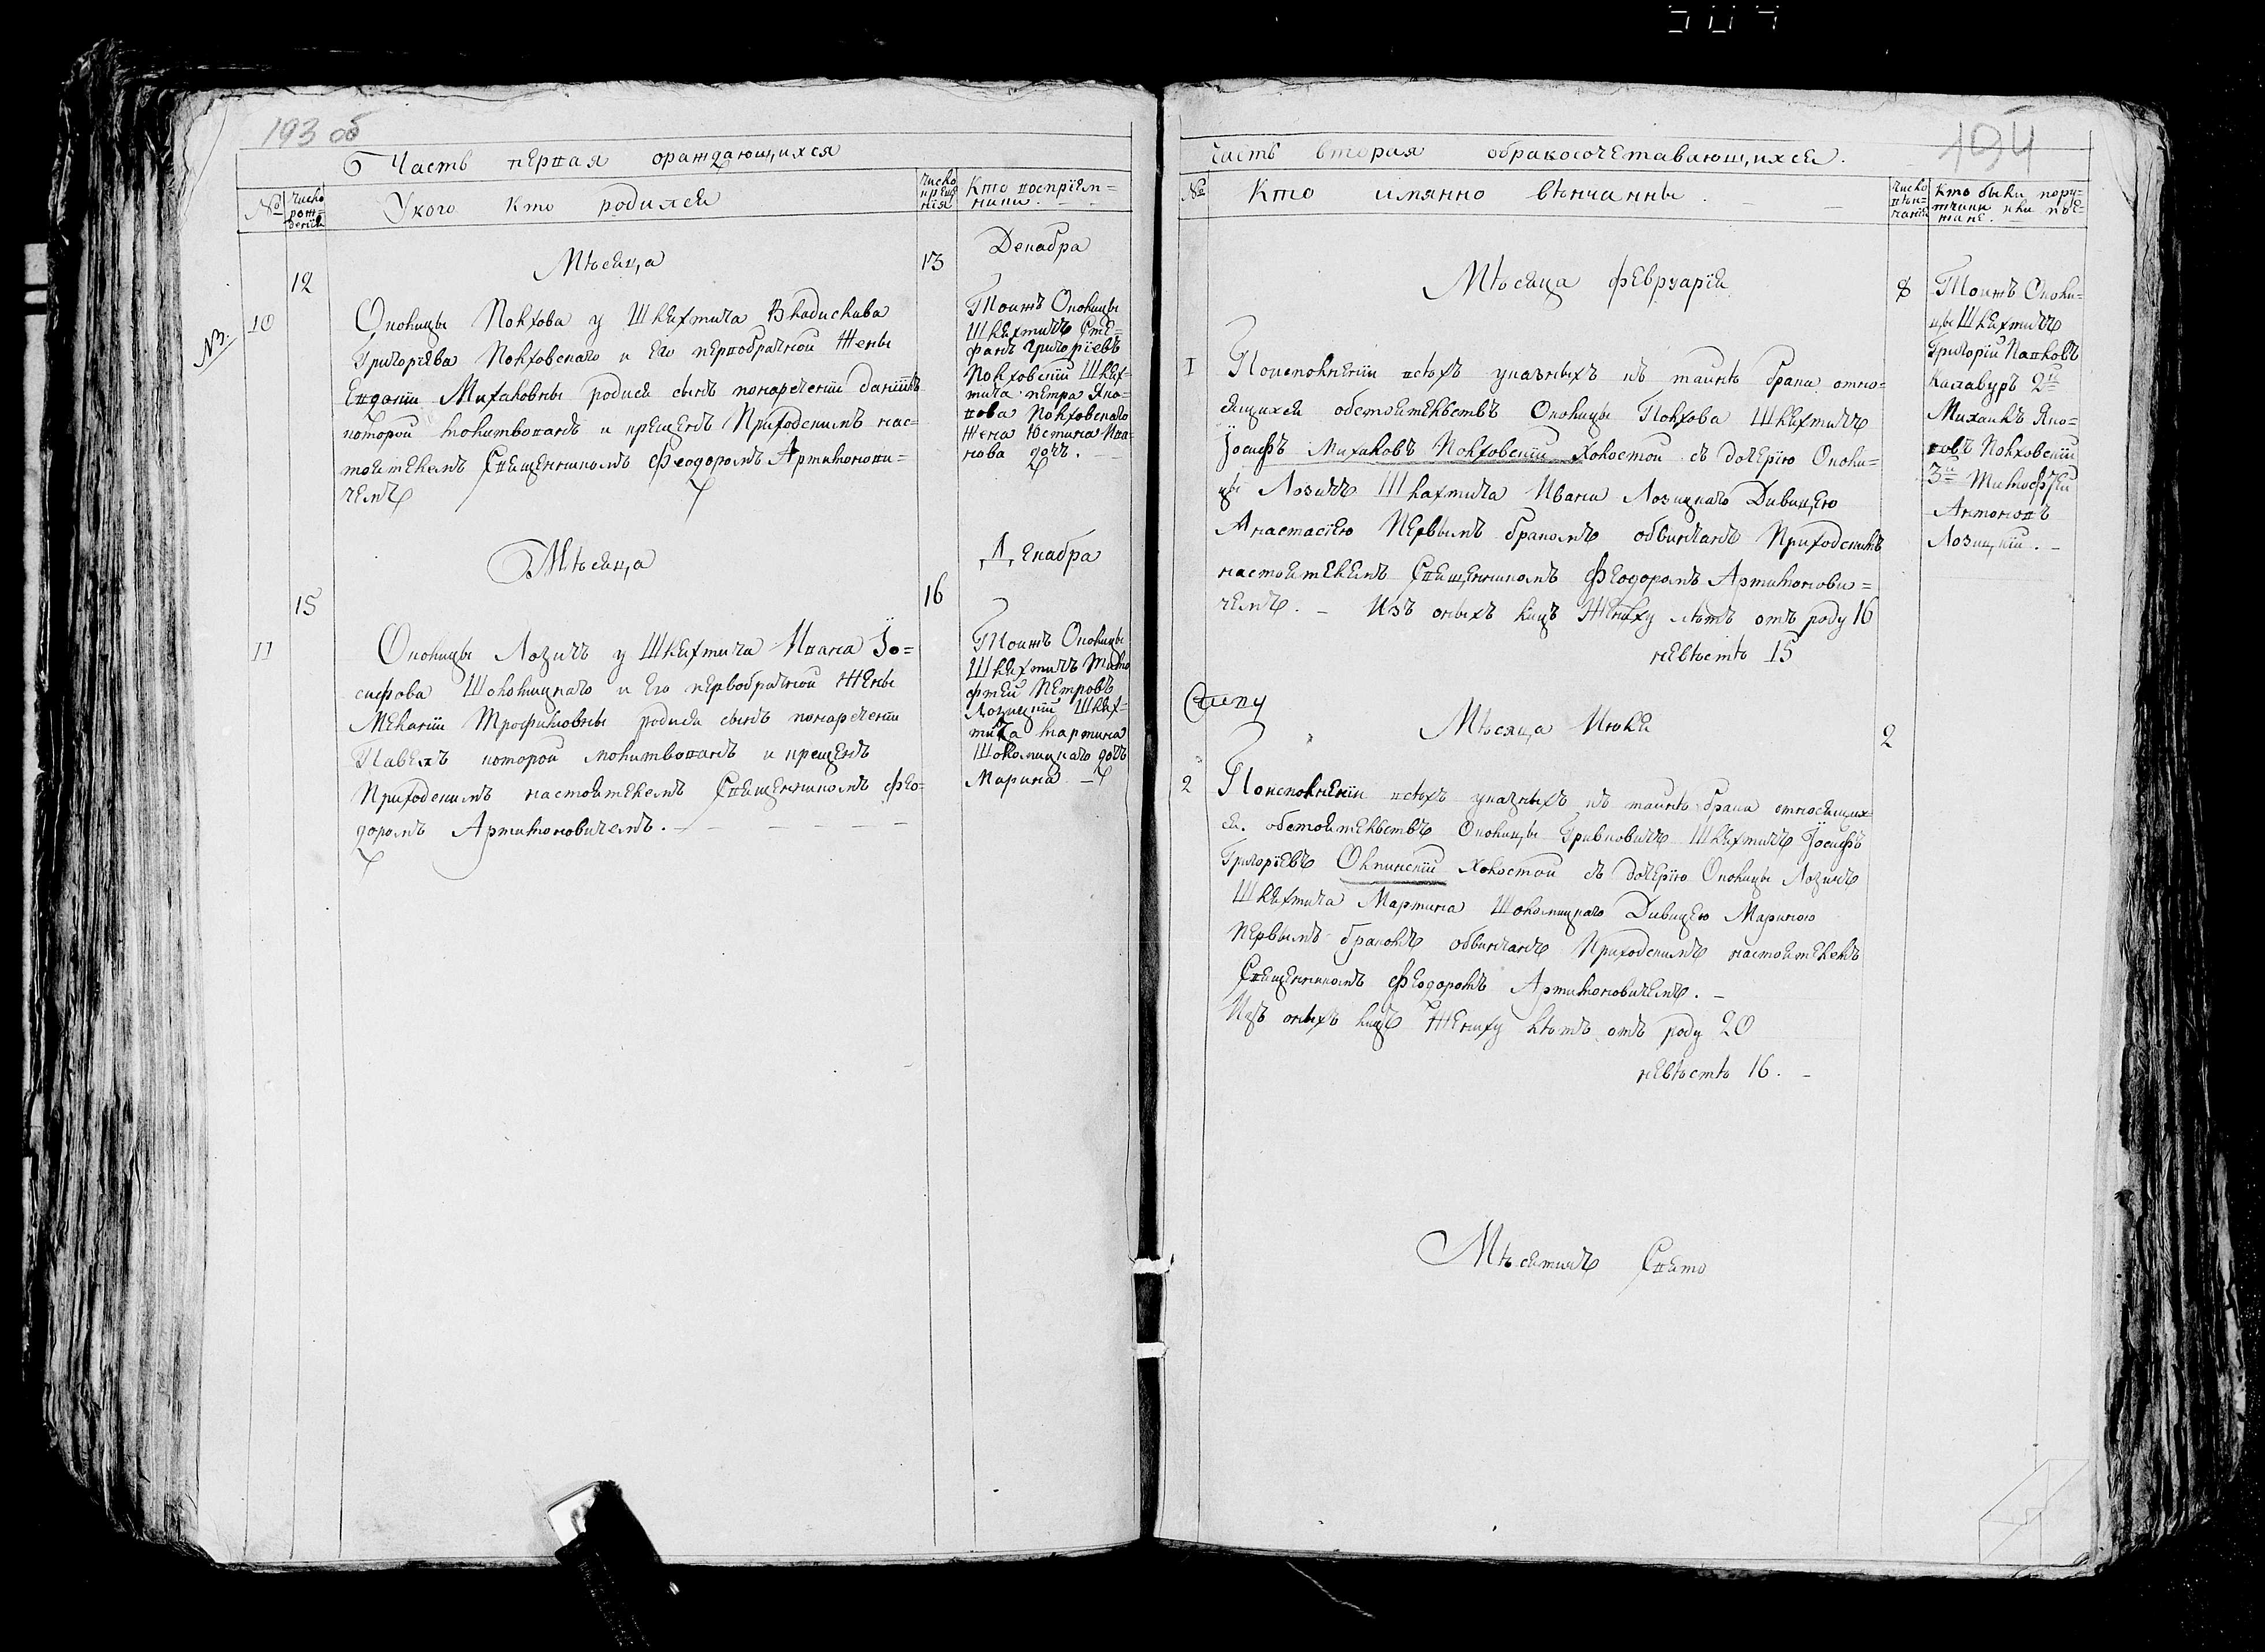 193 об
Часть первая ораждающихся
№
Число рождения
У кого кто родился
Число крещения
Кто восприемники
Мѣсяца
Декабра
12
13
№3.
10
Околицы Полхова у Шляхтича Владислава
Григорьева Полховскаго и Его первобрачной Жены
Евдокии Михаловны родися сынъ понаречении Даниилъ
которой молитвованъ и крещенъ Приходскимъ нас-
тоятелемъ Священникомъ Феодоромъ Артимонови-
чемъ
Тоижъ Околицы
Шляхтичъ Сте-
фанъ Григорïевъ
Полховскïй Шлях-
тича Петра Яко-
вова Полховскаго
Жена Юстина
дочь.
Мѣсяца
Декабра
15
16
11
Околицы Лозичъ у Шляхтича Ивана Iо-
сифова Шоломицкаго и Его первобрачной Жены
Меланïи Трофимовны родися сынъ понаречении
Павелъ которой молитвованъ и крещенъ
Приходскимъ настоятелемъ Священникомъ Фео-
доромъ Артимоновичемъ.
Тоижъ Околицы
Шляхтичъ Тимо
фтей Петровъ
Лозицкïй Шлях-
тича Мартина
Шоломицкаго дочь
Марина
194
Часть вторая обракосочетавающихся.
№
Кто имянно вѣнчанны
Число вѣнчания
Кто были пору-
тчики или пое-
жане.
Мѣсяца Февруарïя
8
1
Поисполненïи всѣхъ указныхъ къ таинѣ брака отно-
сящихся обстоятельствъ Околицы Полхова Шляхтичъ
Iосифъ Михаловъ Полховскïй Холостой съ дочерïю Околи-
цы Лозичъ Шляхтича Ивана Лозицкаго Дивицею
Анастасïею Первымъ бракомъ обвинчанъ Приходскимъ
настоятелемъ Священникомъ Феодоромъ Артимонови-
чемъ. Изъ оныхъ лицъ Жениху лѣтъ отъ роду 16
невѣстѣ 15
Тоижъ Околи-
цы Шляхтичъ
Григорïй Папковъ
Калавуръ 2й
Михаилъ Яко-
вовъ Полховскïй
3й Тимофтей
Антоновъ
Лозицкïй.
Мѣсяца Июля
2
2
Поисполненïи всѣхъ указныхъ къ таинѣ брака относящих-
ся обстоятельствъ Околицы Гривковичъ Шляхтичъ Iосифъ
Григорïевъ Окпинскïй Холостой съ дочерïю Околицы Лозичъ
Шляхтича Мартина Шоломицкаго Дивицею Мариною
Первымъ бракомъ обвинчанъ Приходскимъ настоятелемъ
Священникомъ Феодоромъ Артимоновичемъ.
Изъ оныхъ лицъ Жениху лѣтъ отъ роду 20
невѣстѣ 16.